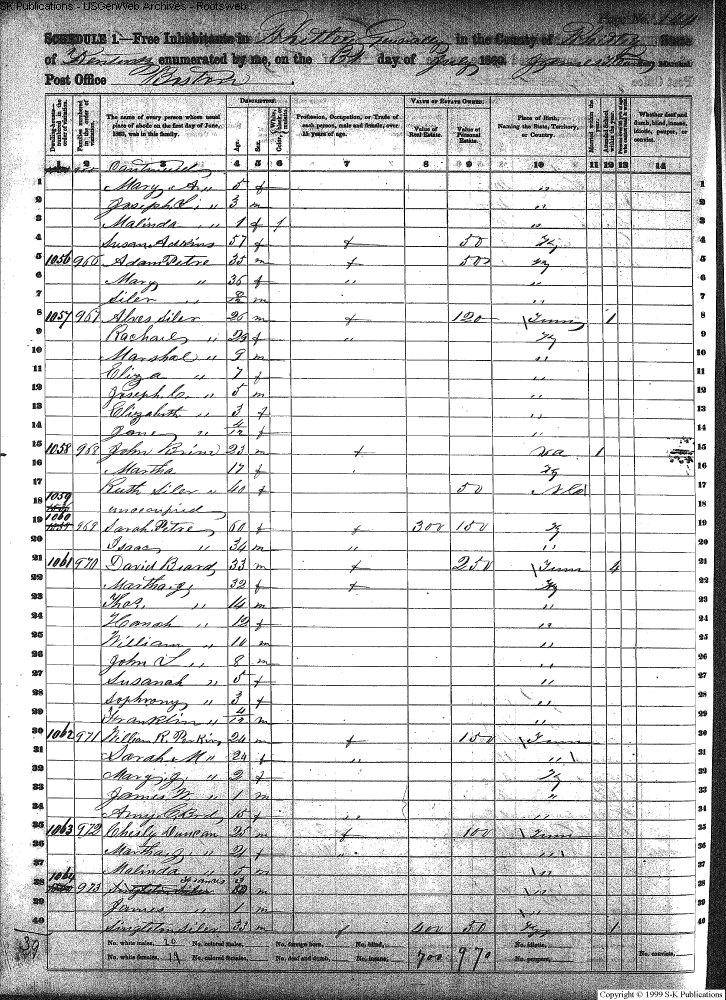 S-K Publications - USGenWeb Archives - Rootsweb
Page No. 144
SCHEDULE 1.—Free Inhabitants in in the County of Whitley State
of Kentucky enumerated by me, on the day of July 1860.
Post Office Boston
DESCRIPTION. VALUE OF ESTATE OWNED.
The name of every person whose usual place of abode on the first day of June, 1860, was in this family.
Age. Sex.
Profession, Occupation, or Trade of each person, male and female, over 15 years of age.
Value of Real Estate. Value of Personal Estate.
Place of Birth, Naming the State, Territory, or Country.
Whether deaf and dumb, blind, insane, idiotic, pauper, or convict.
1 2 3 4 5 6 7 8 9 10 11 12 13 14
1 Mary A. " 5 f "
2 Joseph L. " 3 m "
3 Malinda " 1 f 1 "
4 Susan Adkins 57 f + 50 Ky
5 1056 966 Adam Petre 35 m + 500 Ky
6 Mary " 36 f " "
7 Siler " m "
8 1057 967 Alves Siler 26 m + 120 Tenn 1
9 Rachael " 29 f " Ky
10 Marshal " 9 m "
11 Eliza " 7 f "
12 Joseph C. " 5 m "
13 Elizabeth " 3 f "
14 Jane " 4/12 f "
15 1058 968 John 23 m + Va 1
16 Martha 17 f Ky
17 Ruth Siler " 40 f 50
18 1059 unoccupied
19 1060 969 Sarah Petre 60 f + 300 150 Ky
20 Isaac " 34 m " "
21 1061 970 David Beard 33 m + 250 Tenn 4
22 Martha 32 f + Ky
23 Thos. " 14 m "
24 Hanah " 12 f "
25 William " 10 m "
26 John L " 8 m "
27 Susanah " 5 f "
28 Sophrony " 3 f "
29 Franklin " 4/12 m "
30 1062 971 William R. Perkins 24 m + 150 Tenn
31 Sarah M " 24 f " "
32 Mary J. " 2 f Ky
33 James W. " 1 m "
34 Amy C. Bird 15 f " "
35 1063 972 Chesly Duncan 25 m + 100 Tenn
36 Martha J. " 21 f " "
37 Malinda 5 "
38 1064 973 Francis 3 "
39 James " 1 m "
40 Singleton Siler 33 m + 400 50 Ky 1
39
No. white males, No. colored males, No. foreign born, No. blind, No. idiotic,
No. white females, No. colored females, No. deaf and dumb, No. insane, 700 970 No. paupers, No. convicts,
Copyright © 1999 S-K Publications